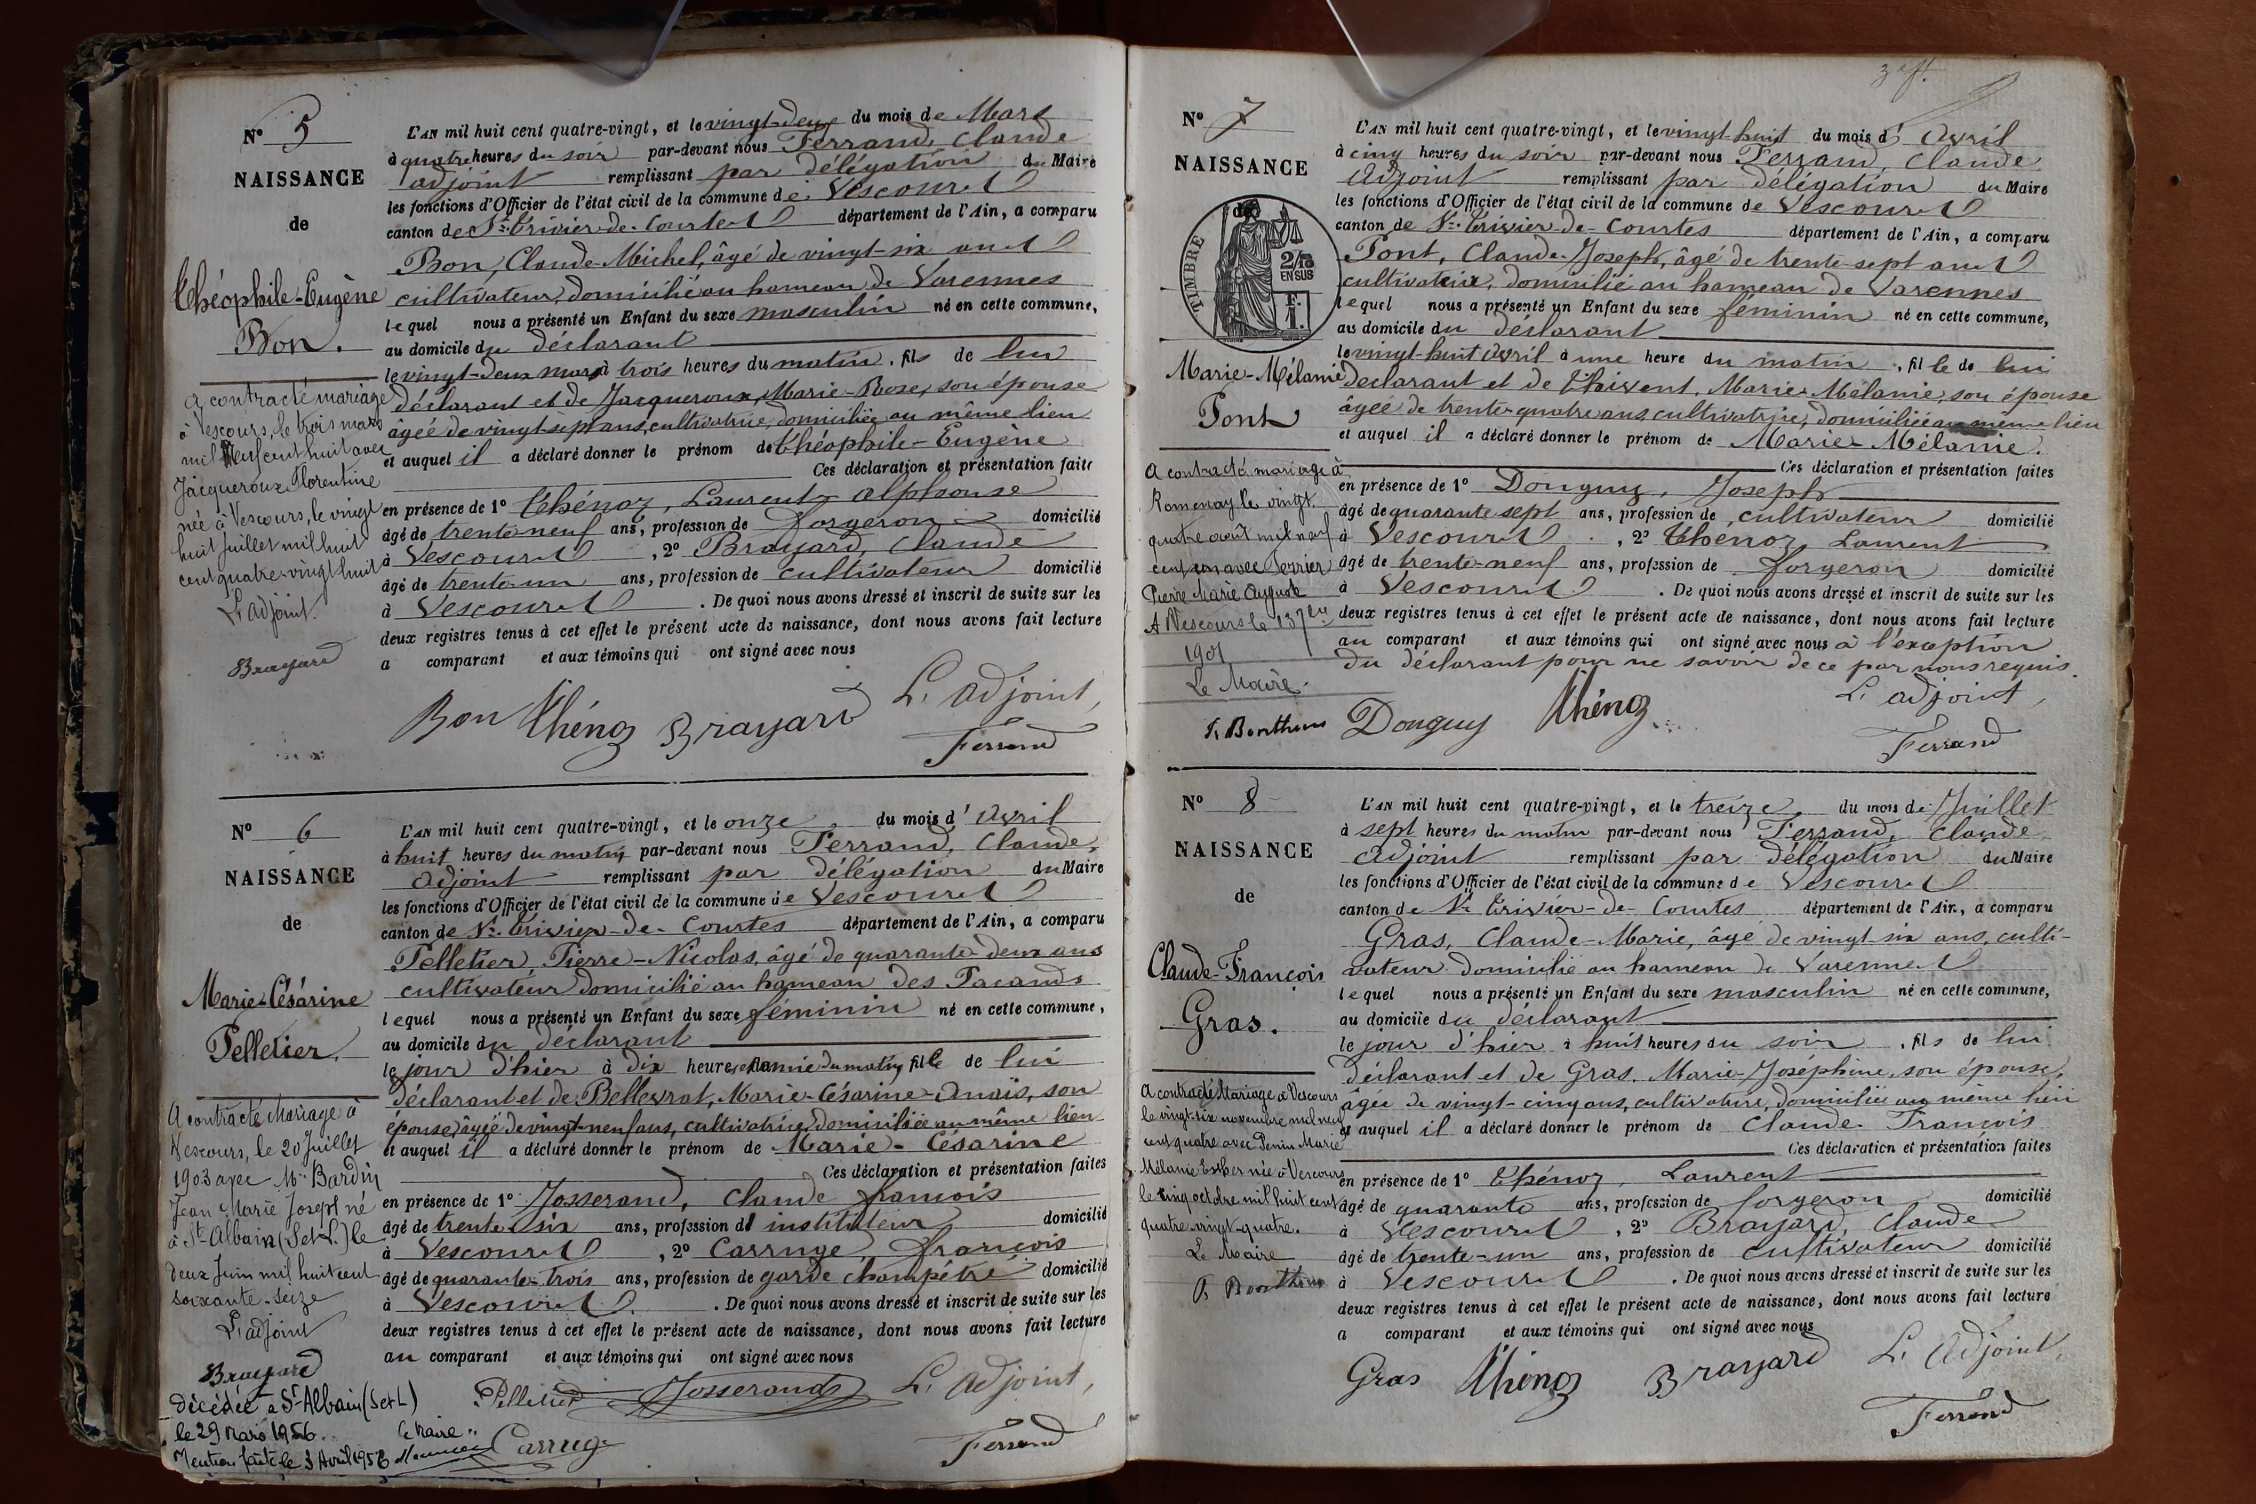 N° 5
NAISSANCE
de
Théophile-Eugène
Bon.
a contracté mariage
à Vescours, le trois mars
mil neuf cent huit avec
Jacqueroux Florentine
née à Vescours, le vingt
huit Juillet mil huit
cent quatre-vingt huit
L'adjoint.
Brayard
L'AN mil huit cent quatre-vingt, et le vingt-deux du mois de Mars
à quatre heures du soir par-devant nous Ferrand, Claude
adjoint remplissant par délégation du Maire
les fonctions d'Officier de l'état civil de la commune de Vescours
canton de St-Trivier-de-Courtes département de l'Ain, a comparu
Bon, Claude-Michel, âgé de vingt-six ans
cultivateur, domicilié au hameau de Varennes
lequel nous a présenté un Enfant du sexe masculin né en cette commune,
au domicile du déclarant
le vingt-deux mars à trois heures du matin, fils de lui
déclarant et de Jacqueroux, Marie-Rose, son épouse
âgée de vingt-sept ans, cultivatrice, domiciliée au même lieu
et auquel il a déclaré donner le prénom de Théophile-Eugène
Ces déclaration et présentation faites
en présence de 1° Thénoz, Laurent Alphonse
âgé de trente-neuf ans, profession de forgeron domicilié
à Vescours, 2° Brayard, Claude
âgé de trente-un ans, profession de cultivateur domicilié
à Vescours. De quoi nous avons dressé et inscrit de suite sur les
deux registres tenus à cet effet le présent acte de naissance, dont nous avons fait lecture
a comparant et aux témoins qui ont signé avec nous
L'adjoint,
Bon Thénoz Brayard
Ferrand
N° 6
NAISSANCE
de
Marie-Césarine
Pelletier.
A contracté Mariage à
Vescours, le 20 Juillet
1903 avec Mr. Bardin
Jean Marie Joseph né
à St-Albain (S et L.) le
deux Juin mil huit cent
soixante-seize
L'adjoint
Brayard
Décédée à St-Albain (S et L)
le 29 mars 1956.
Mention faite le 3 Avril 1956
Le Maire
L'AN mil huit cent quatre-vingt, et le onze du mois d'Avril
à huit heures du matin par-devant nous Ferrand, Claude,
adjoint remplissant par délégation du Maire
les fonctions d'Officier de l'état civil de la commune de Vescours
canton de St-Trivier-de-Courtes département de l'Ain, a comparu
Pelletier, Pierre-Nicolas, âgé de quarante-deux ans
cultivateur domicilié au hameau des Pacauds
lequel nous a présenté un Enfant du sexe féminin né en cette commune,
au domicile du déclarant
le jour d'hier à dix heures et demie du matin, fille de lui
déclarant et de Bellevrat, Marie-Césarine-Anaïs, son
épouse, âgée de vingt-neuf ans, cultivatrice, domiciliée au même lieu
et auquel il a déclaré donner le prénom de Marie-Césarine
Ces déclaration et présentation faites
en présence de 1° Josserand, Claude françois
âgé de trente-six ans, profession d'instituteur domicilié
à Vescours, 2° Carruge, françois
âgé de quarante-trois ans, profession de garde champêtre domicilié
à Vescours. De quoi nous avons dressé et inscrit de suite sur les
deux registres tenus à cet effet le présent acte de naissance, dont nous avons fait lecture
au comparant et aux témoins qui ont signé avec nous
Pelletier Josserand L'Adjoint,
Carruge Ferrand
N° 7
NAISSANCE
de
TIMBRE
2/10
EN SUS
Marie-Mélanie
Pont
A contracté mariage à
Romenay le vingt
quatre août mil neuf
cent un avec Perrier
Pierre Marie August
A Vescours le 13 7bre
1901
Le Maire.
L'AN mil huit cent quatre-vingt, et le vingt-huit du mois d'Avril
à cinq heures du soir par-devant nous Ferrand, Claude
Adjoint remplissant par délégation du Maire
les fonctions d'Officier de l'état civil de la commune de Vescours
canton de St-Trivier-de-Courtes département de l'Ain, a comparu
Pont, Claude-Joseph, âgé de trente-sept ans
cultivateur, domicilié au hameau de Varennes
lequel nous a présenté un Enfant du sexe féminin né en cette commune,
au domicile du déclarant
le vingt-huit avril à une heure du matin, fille de lui
déclarant et de Thivent, Marie-Mélanie, son épouse
âgée de trente-quatre ans, cultivatrice, domiciliée au même lieu
et auquel il a déclaré donner le prénom de Marie-Mélanie.
Ces déclaration et présentation faites
en présence de 1° Donguy, Joseph
âgé de quarante sept ans, profession de cultivateur domicilié
à Vescours, 2° Thénoz Laurent
âgé de trente-neuf ans, profession de forgeron domicilié
à Vescours. De quoi nous avons dressé et inscrit de suite sur les
deux registres tenus à cet effet le présent acte de naissance, dont nous avons fait lecture
au comparant et aux témoins qui ont signé avec nous à l'exception
du déclarant pour ne savoir de ce par nous requis.
L'adjoint,
Donguy Thénoz
Ferrand
N° 8
NAISSANCE
de
Claude-François
Gras.
A contracté Mariage à Vescours
le vingt-six novembre mil neuf
cent quatre avec Penin Marie
Mélanie Esther née à Vescours
le cinq octobre mil huit cent
quatre-vingt-quatre.
Le Maire
L'AN mil huit cent quatre-vingt, et le treize du mois de Juillet
à sept heures du matin par-devant nous Ferrand, Claude
adjoint remplissant par délégation du Maire
les fonctions d'Officier de l'état civil de la commune de Vescours
canton de St Trivier-de-Courtes département de l'Ain, a comparu
Gras, Claude-Marie, âgé de vingt-six ans, culti-
vateur domicilié au hameau de Varennes
lequel nous a présenté un Enfant du sexe masculin né en cette commune,
au domicile du déclarant
le jour d'hier à huit heures du soir, fils de lui
déclarant et de Gras, Marie-Joséphine, son épouse,
âgée de vingt-cinq ans, cultivatrice, domiciliée au même lieu
et auquel il a déclaré donner le prénom de Claude François
Ces déclaration et présentation faites
en présence de 1° Thénoz, Laurent
âgé de quarante ans, profession de forgeron domicilié
à Vescours, 2° Brayard, Claude
âgé de trente-un ans, profession de cultivateur domicilié
à Vescours. De quoi nous avons dressé et inscrit de suite sur les
deux registres tenus à cet effet le présent acte de naissance, dont nous avons fait lecture
a comparant et aux témoins qui ont signé avec nous
Gras Thénoz Brayard L'Adjoint,
Ferrand